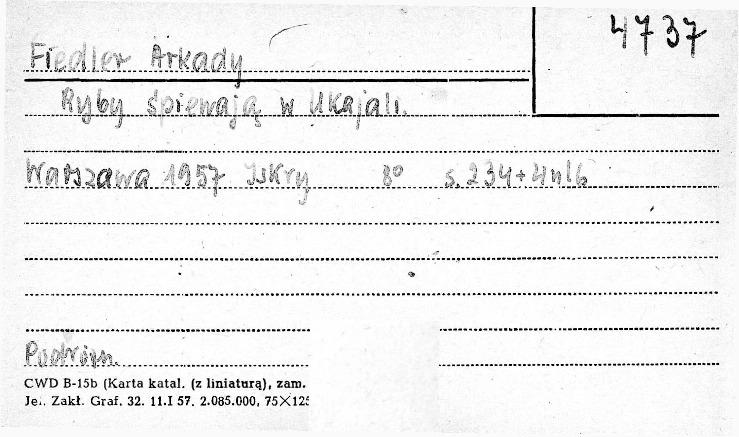 4737
Fiedler Arkady
Ryby śpiewają w Ukajali.
Warszawa 1957 Iskry 8° s. 234+4nlb
CWD B-15b (Karta katal. (z liniaturą), zam.
Je.. Zakł. Graf. 32. 11.I 57. 2.085.000, 75×125